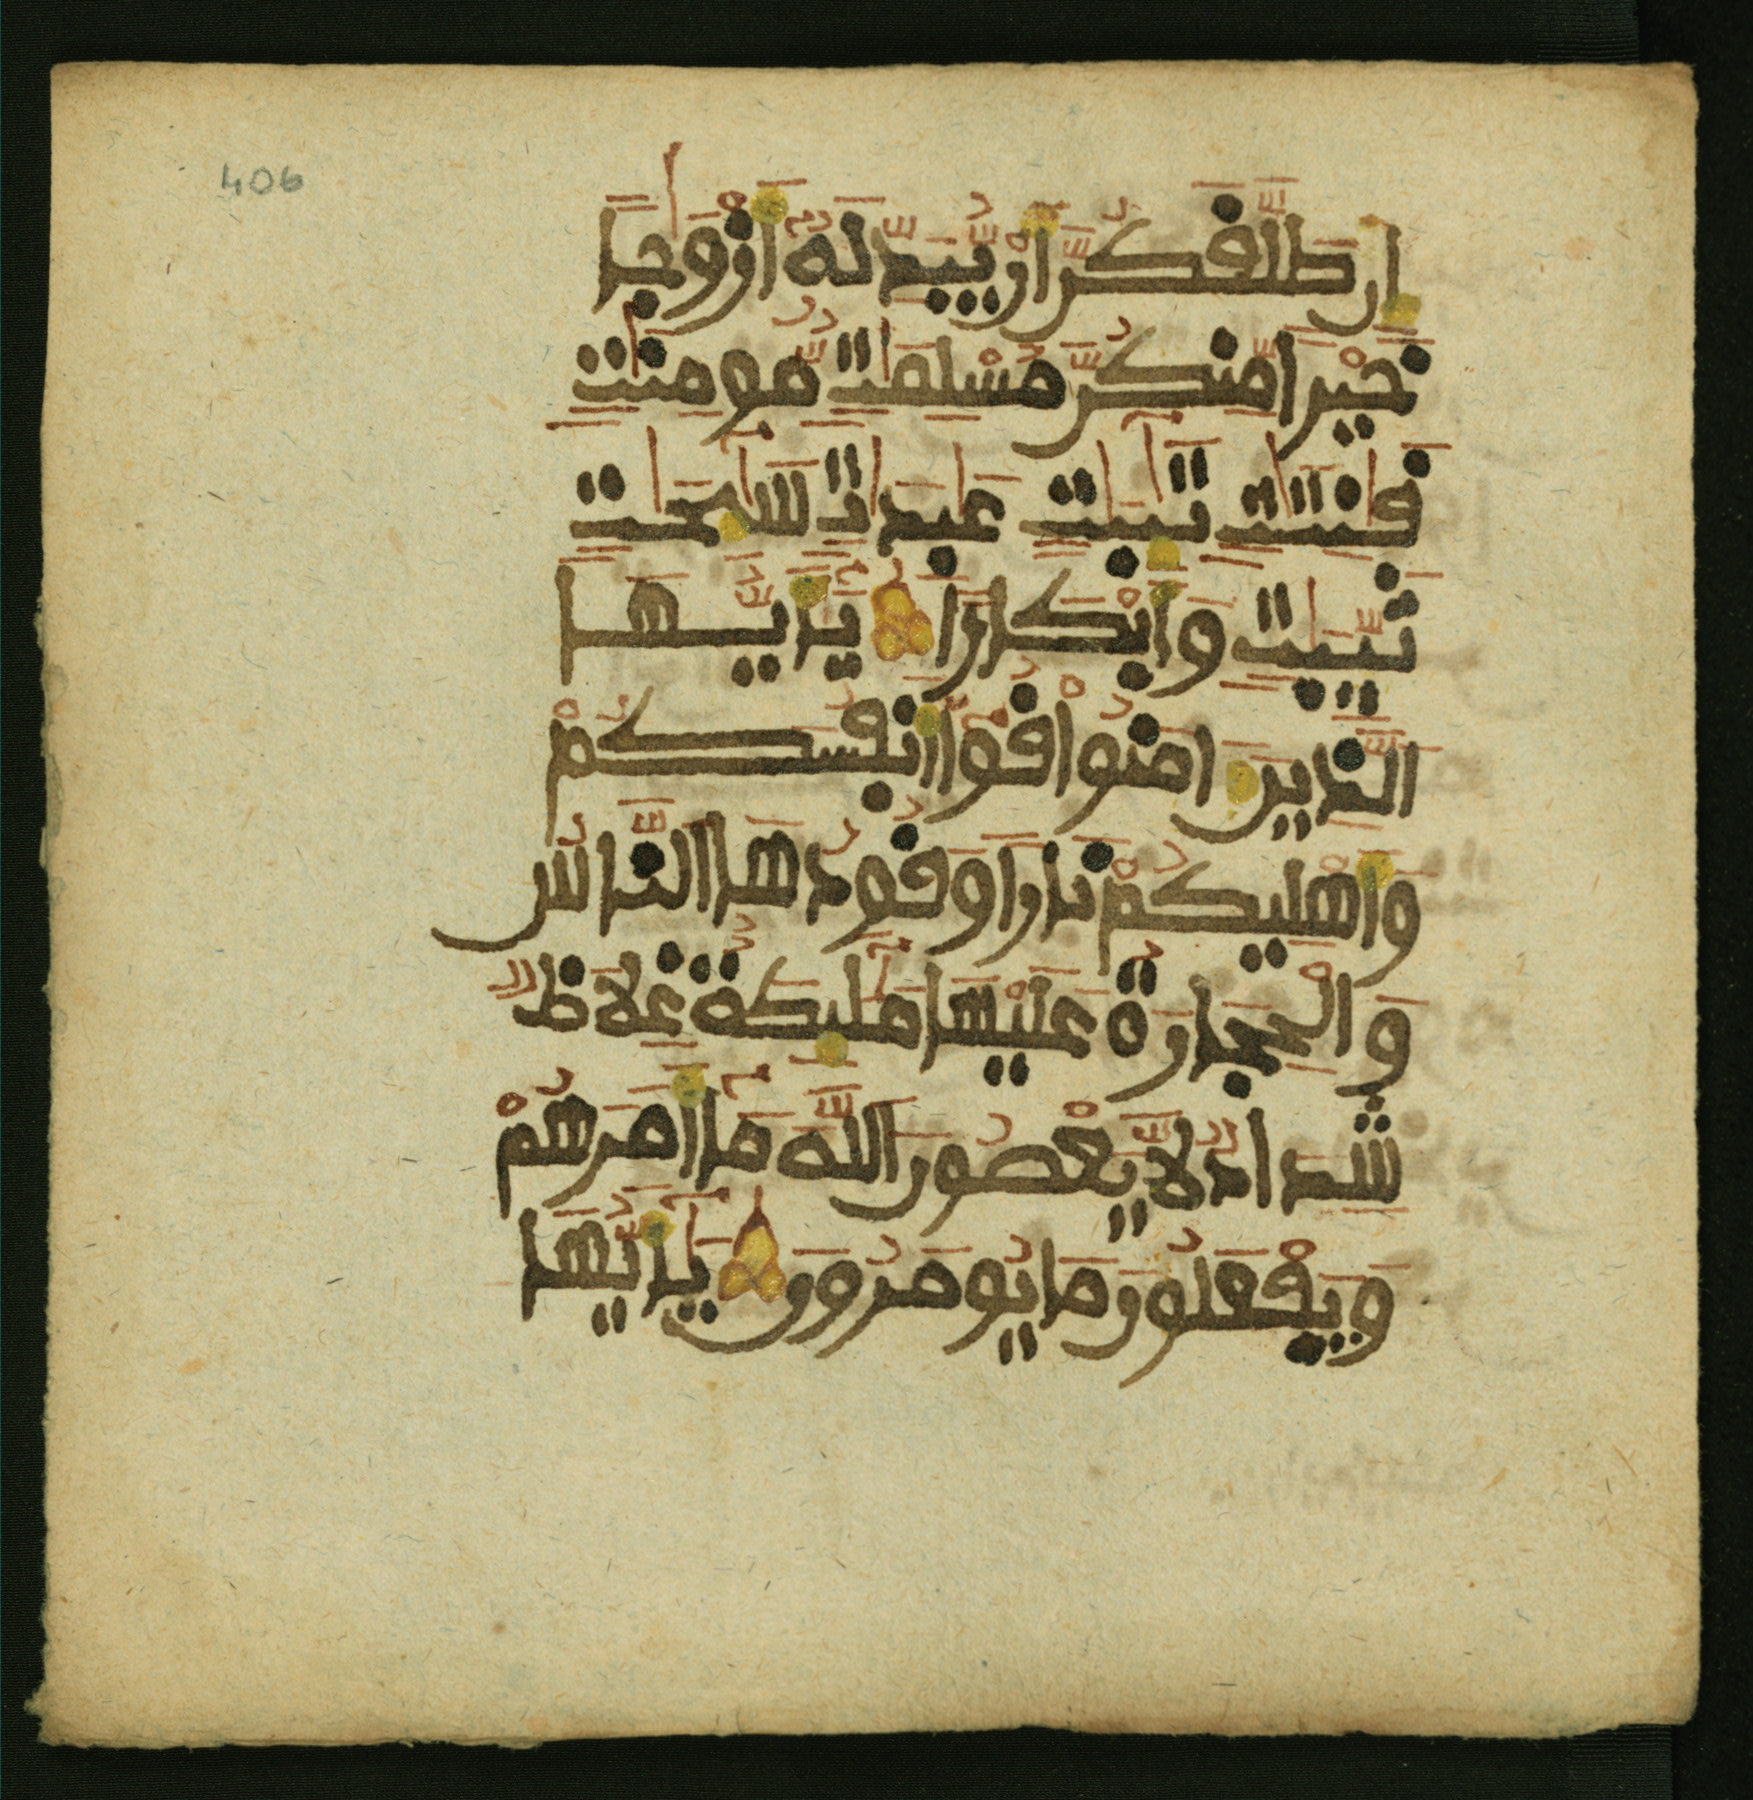 406
اِن طَلَّقَكُنَّ أَنْ يُّبَدِّلَهُۥٓ أَزْوَٰجاً
خَيْراً مِّنكُنَّ مُسْلِمَٰتٖ مُّومِنَٰتٖ
قَٰنِتَٰتٖ تَٰٓئِبَٰتٍ عَٰبِدَٰتٖ سَٰٓئِحَٰتٖ
ثَيِّبَٰتٖ وَأَبْكَاراً يَٰٓأَيُّهَا
اَ۬لذِينَ ءَامَنُواْ قُوٓاْ أَنفُسَكُمْ
وَأَهْلِيكُمْ نَاراً وَقُودُهَا اَ۬لنَّاسُ
وَالْحِجَارَةُ عَلَيْهَا مَلَٰٓئِكَةٌ غِلَاظٌ
شِدَادٌ لَّا يَعْصُونَ اَ۬للَّهَ مَآ أَمَرَهُمْ
وَيَفْعَلُونَ مَا يُومَرُونَ يَٰٓأَيُّهَا